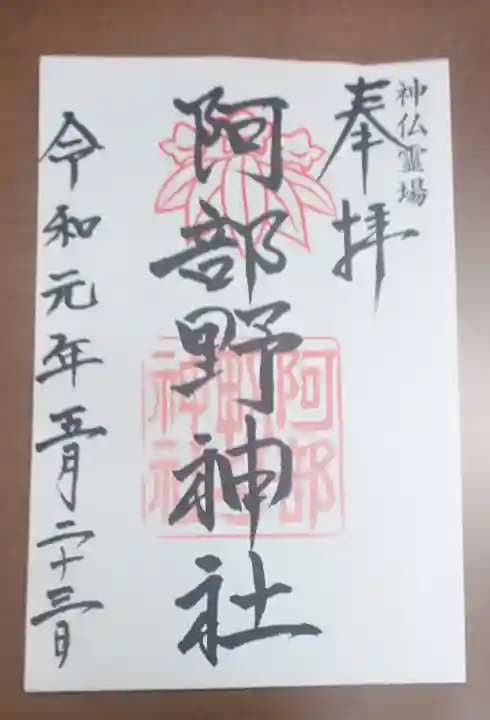 神仏霊場
奉拝
阿部野神社
阿部野神社
令和元年五月二十三日